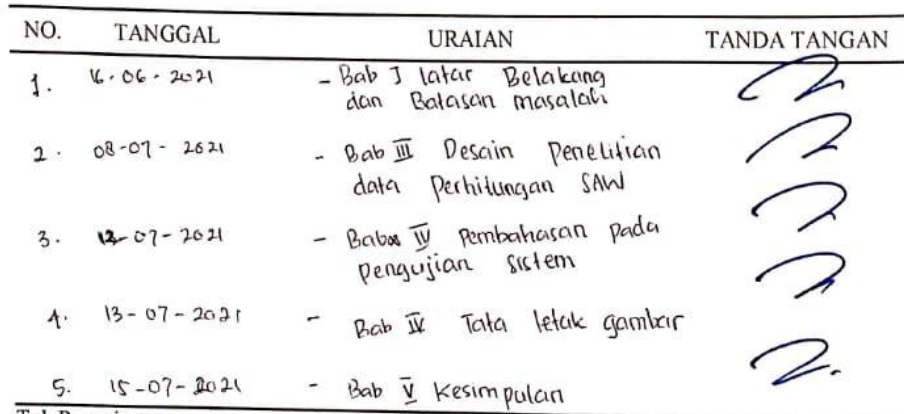 NO. TANGGAL URAIAN TANDA TANGAN
1. 16-06-2021 - Bab I latar Belakang
dan Batasan masalah
2. 08-07-2021 - Bab III Desain Penelitian
data Perhitungan SAW
3. 12-07-2021 - Bab IV Pembahasan pada
pengujian sistem
4. 13-07-2021 - Bab IV Tata letak gambar
5. 15-07-2021 - Bab V Kesimpulan